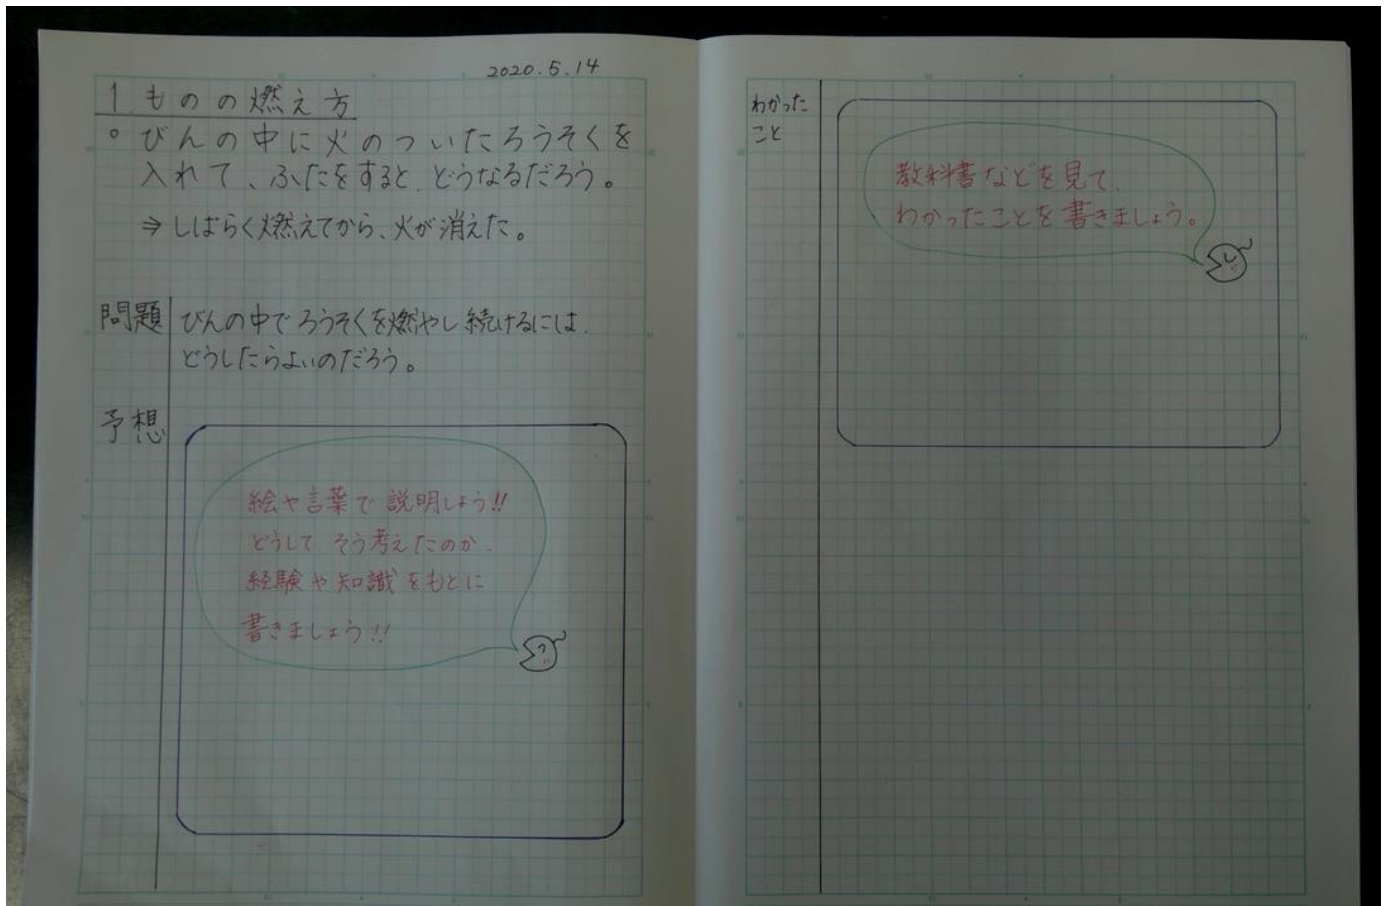 2020.5.14
1 ものの燃え方
○ びんの中に火のついたろうそくを
入れて、ふたをすると、どうなるだろう。
⇒ しばらく燃えてから、火が消えた。
問題
びんの中でろうそくを燃やし続けるには、
どうしたらよいのだろう。
予想
絵や言葉で説明しよう!!
どうしてそう考えたのか、
経験や知識をもとに
書きましょう!!
わかった
こと
教科書などを見て、
わかったことを書きましょう。